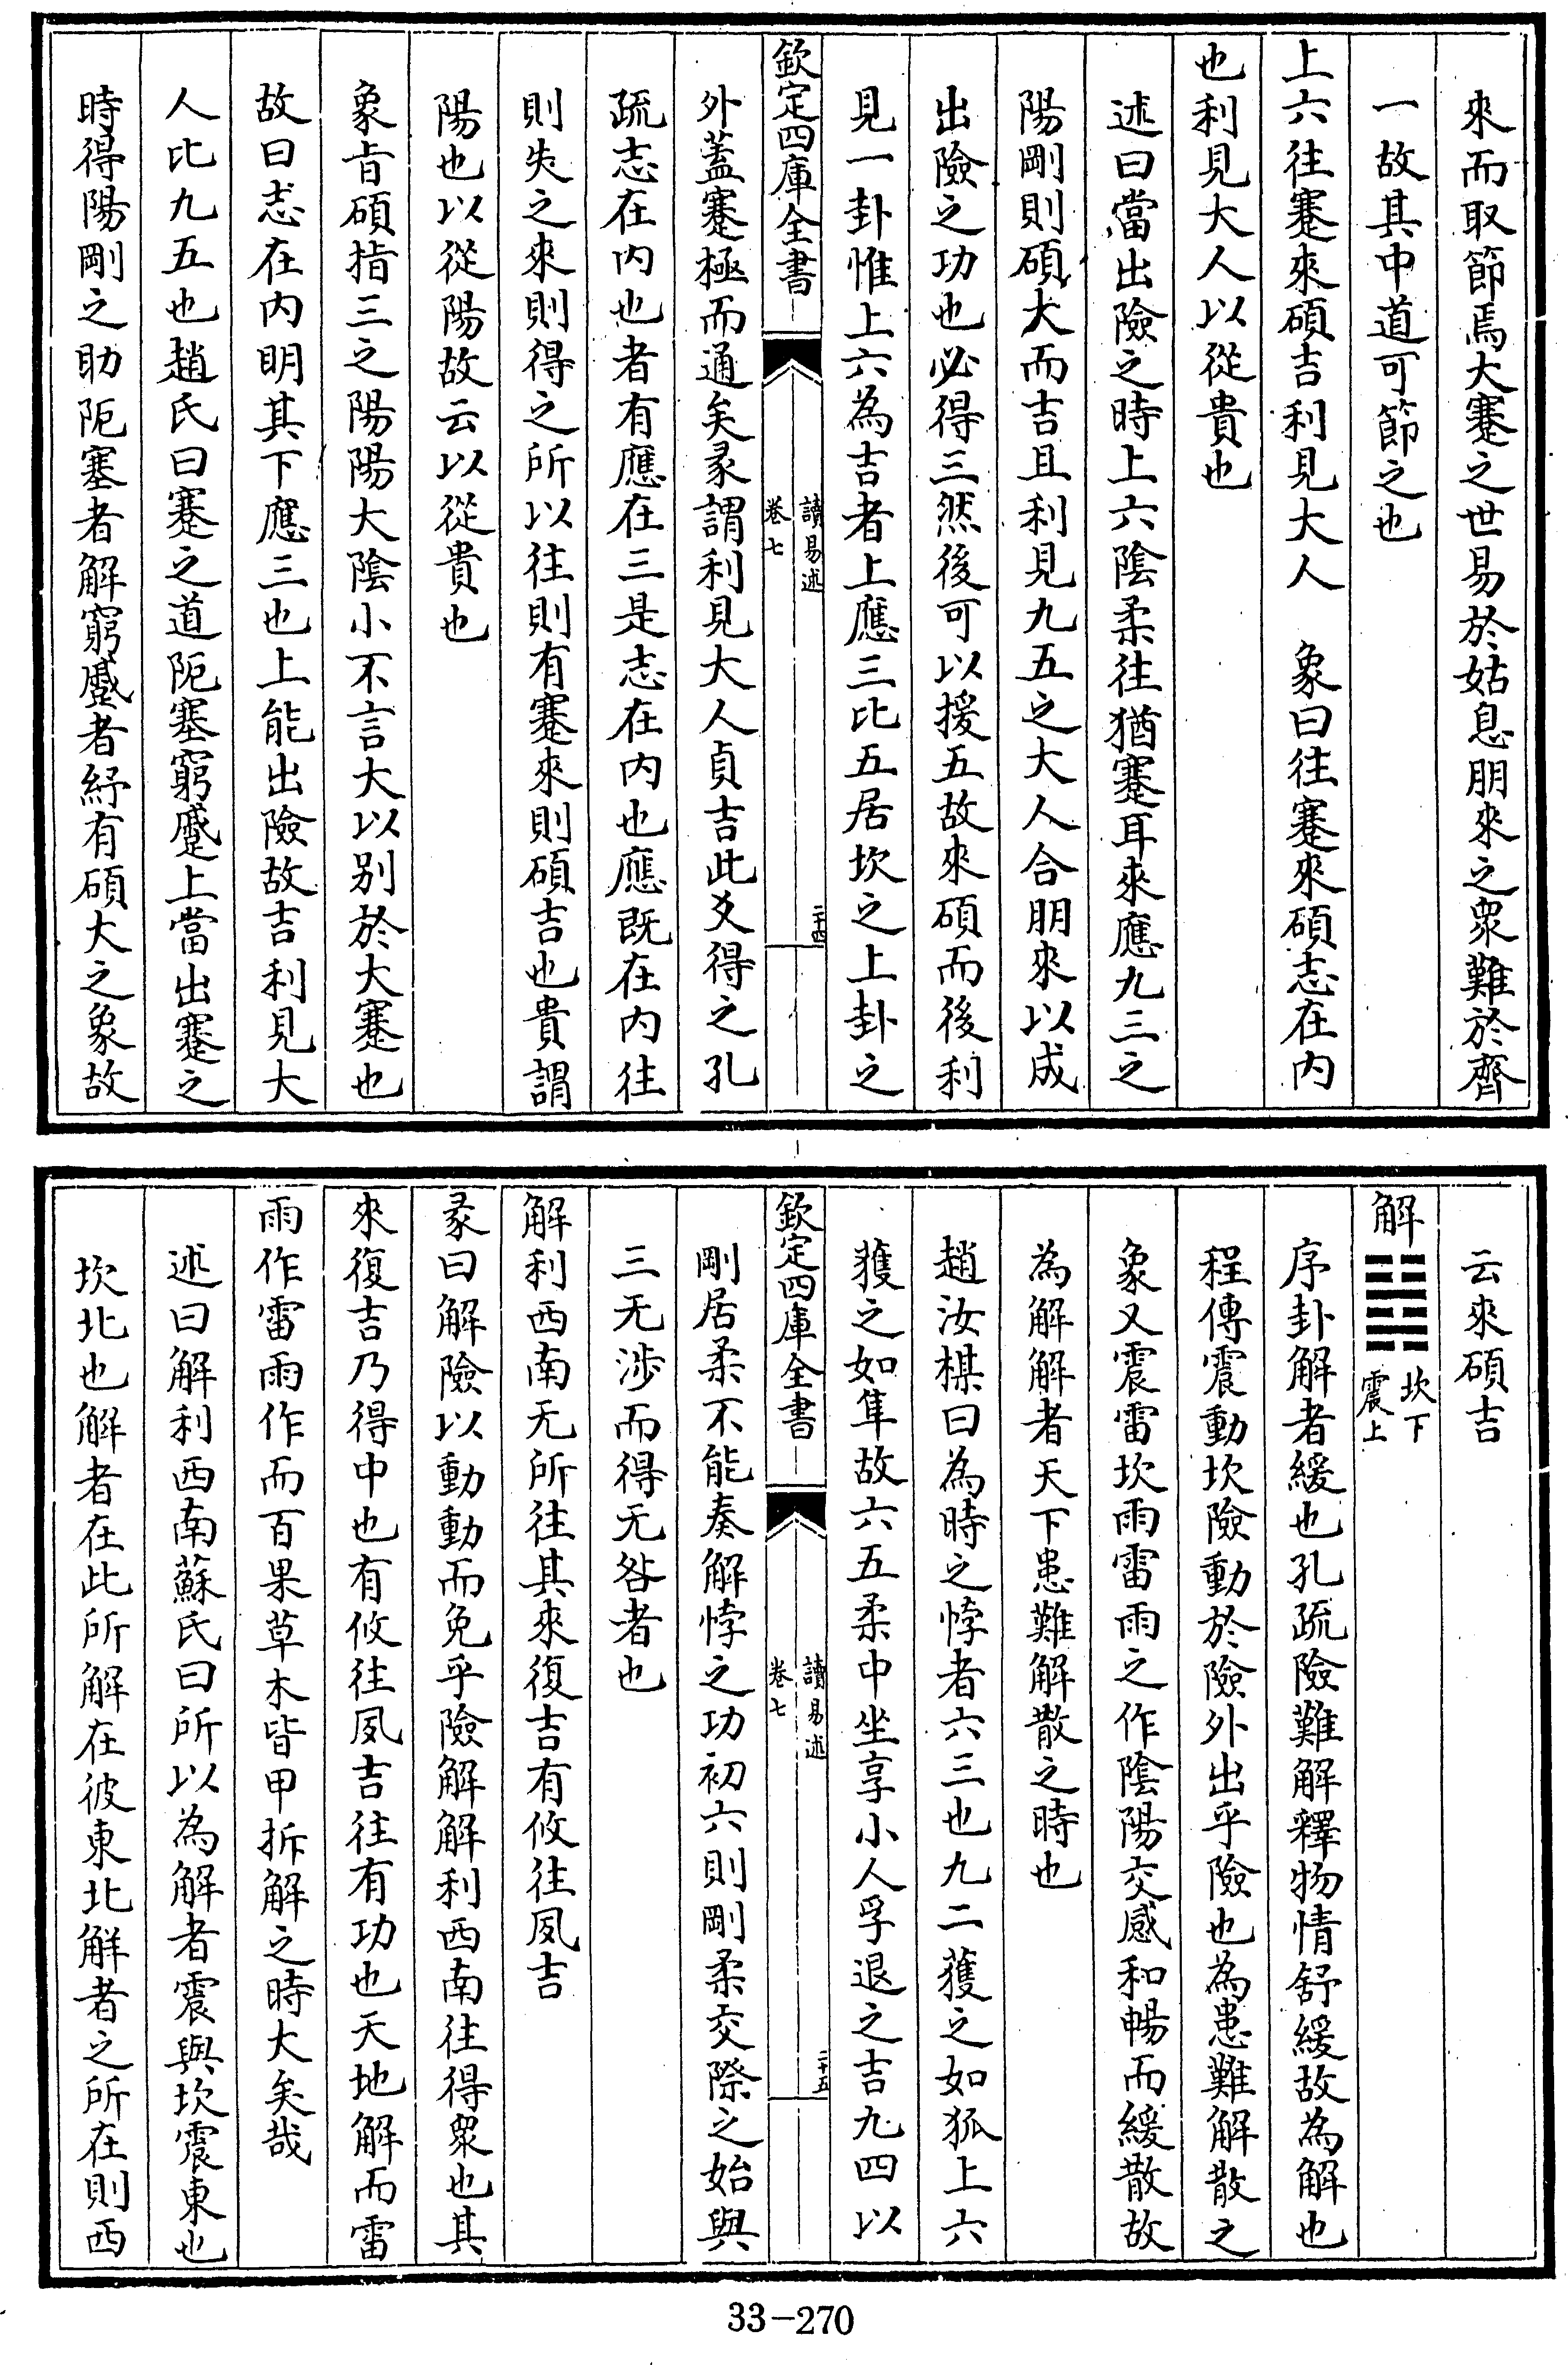 來而取節焉大蹇之世易於姑息朋來之衆難於齊
一故其中道可節之也
上六往蹇來碩吉利見大人　象曰往蹇來碩志在內
也利見大人以從貴也
述曰當出險之時上六陰柔往猶蹇耳來應九三之
陽剛則碩大而吉且利見九五之大人合朋來以成
出險之功也必得三然後可以援五故來碩而後利
見一卦惟上六為吉者上應三比五居坎之上卦之
欽定四庫全書
讀易述
卷七
二十四
外蓋蹇極而通矣彖謂利見大人貞吉此爻得之孔
疏志在內也者有應在三是志在內也應既在內往
則失之來則得之所以往則有蹇來則碩吉也貴謂
陽也以從陽故云以從貴也
象旨碩指三之陽陽大陰小不言大以别於大蹇也
故曰志在內明其下應三也上能出險故吉利見大
人比九五也趙氏曰蹇之道阨塞窮蹙上當出蹇之
時得陽剛之助阨塞者解窮蹙者紓有碩大之象故
云來碩吉
解䷧坎下
震上
序卦解者緩也孔疏險難解釋物情舒緩故為解也
程傳震動坎險動於險外出乎險也為患難解散之
象又震雷坎雨雷雨之作陰陽交感和暢而緩散故
為解解者天下患難解散之時也
趙汝楳曰為時之悖者六三也九二獲之如狐上六
獲之如隼故六五柔中坐享小人孚退之吉九四以
欽定四庫全書
讀易述
卷七
二十五
剛居柔不能奏解悖之功初六則剛柔交際之始與
三无涉而得无咎者也
解利西南无所往其來復吉有攸往夙吉
彖曰解險以動動而免乎險解解利西南往得衆也其
來復吉乃得中也有攸往夙吉往有功也天地解而雷
雨作雷雨作而百果草木皆甲拆解之時大矣哉
述曰解利西南蘇氏曰所以為解者震與坎震東也
坎北也解者在此所解在彼東北解者之所在則西
33-270